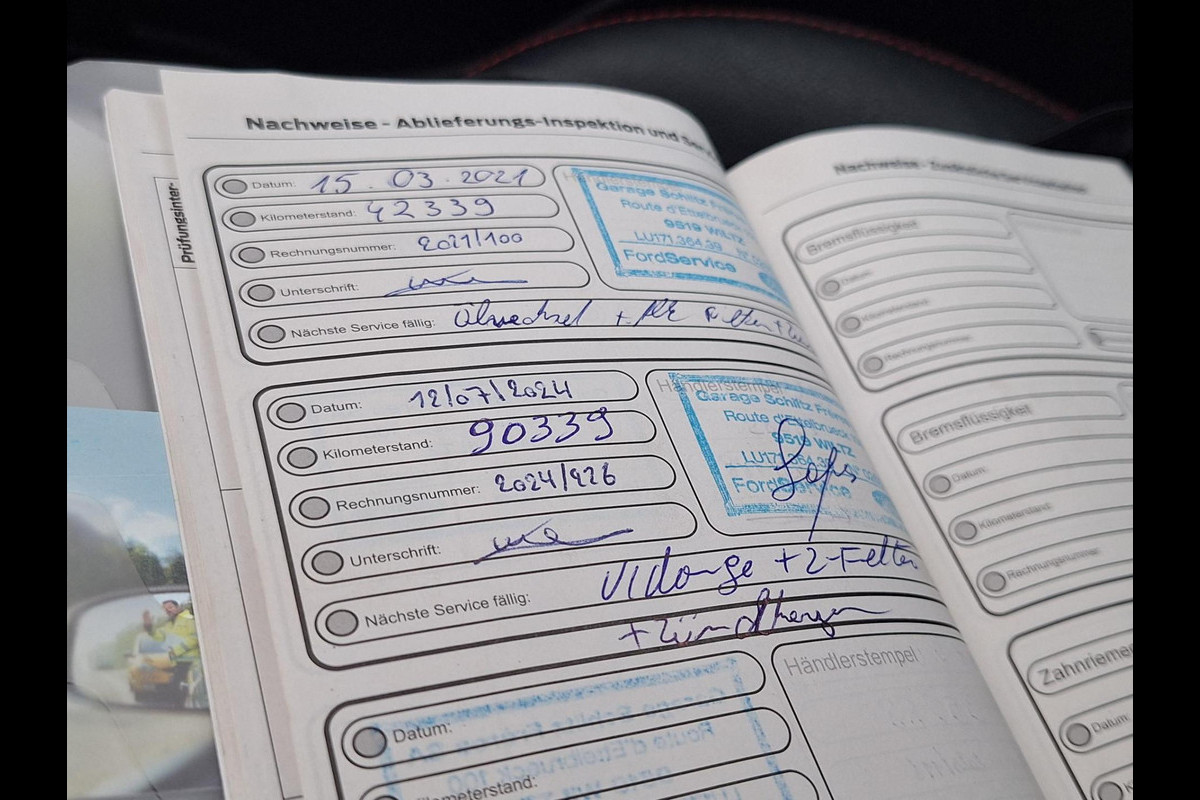 Nachweise - Ablieferungs-Inspektion und
Prüfungsinter-
Datum: 15.03.2021
Kilometerstand: 42339
Rechnungsnummer: 2021/100
Unterschrift:
Nächste Service fällig: Ölwechsel +
Garage Schiltz
Route d'Ettelbrueck
9519 WILTZ
LU171.364.39
FordService
Datum: 12/07/2024
Kilometerstand: 90339
Rechnungsnummer: 2024/426
Unterschrift:
Nächste Service fällig: Vidange + 2
+ Zündkerzen
Händlerstempel
Garage Schiltz
Route d'Ettelbrueck
9519 WILTZ
LU171.364.39
FordService
Datum:
Kilometerstand:
Händlerstempel
Garage Schiltz Frères SA
Route d'Ettelbrueck 100
Nachweise -
Bremsflüssigkeit
Datum:
Kilometerstand:
Rechnungsnummer:
Bremsflüssigkeit
Datum:
Kilometerstand:
Rechnungsnummer:
Datum: